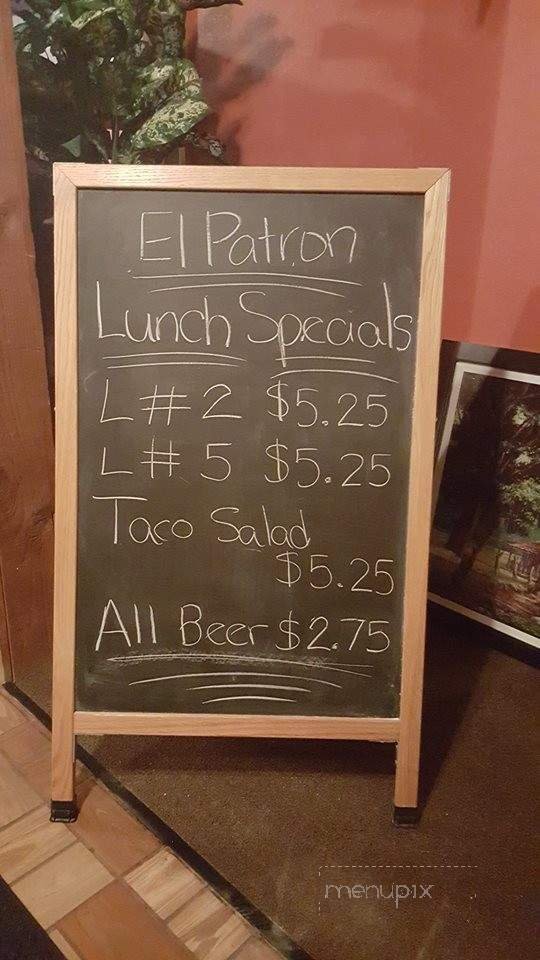 El Patron
Lunch Specials
L# 2 $5.25
L# 5 $5.25
Taco Salad
$5.25
All Beer $2.75
menupix